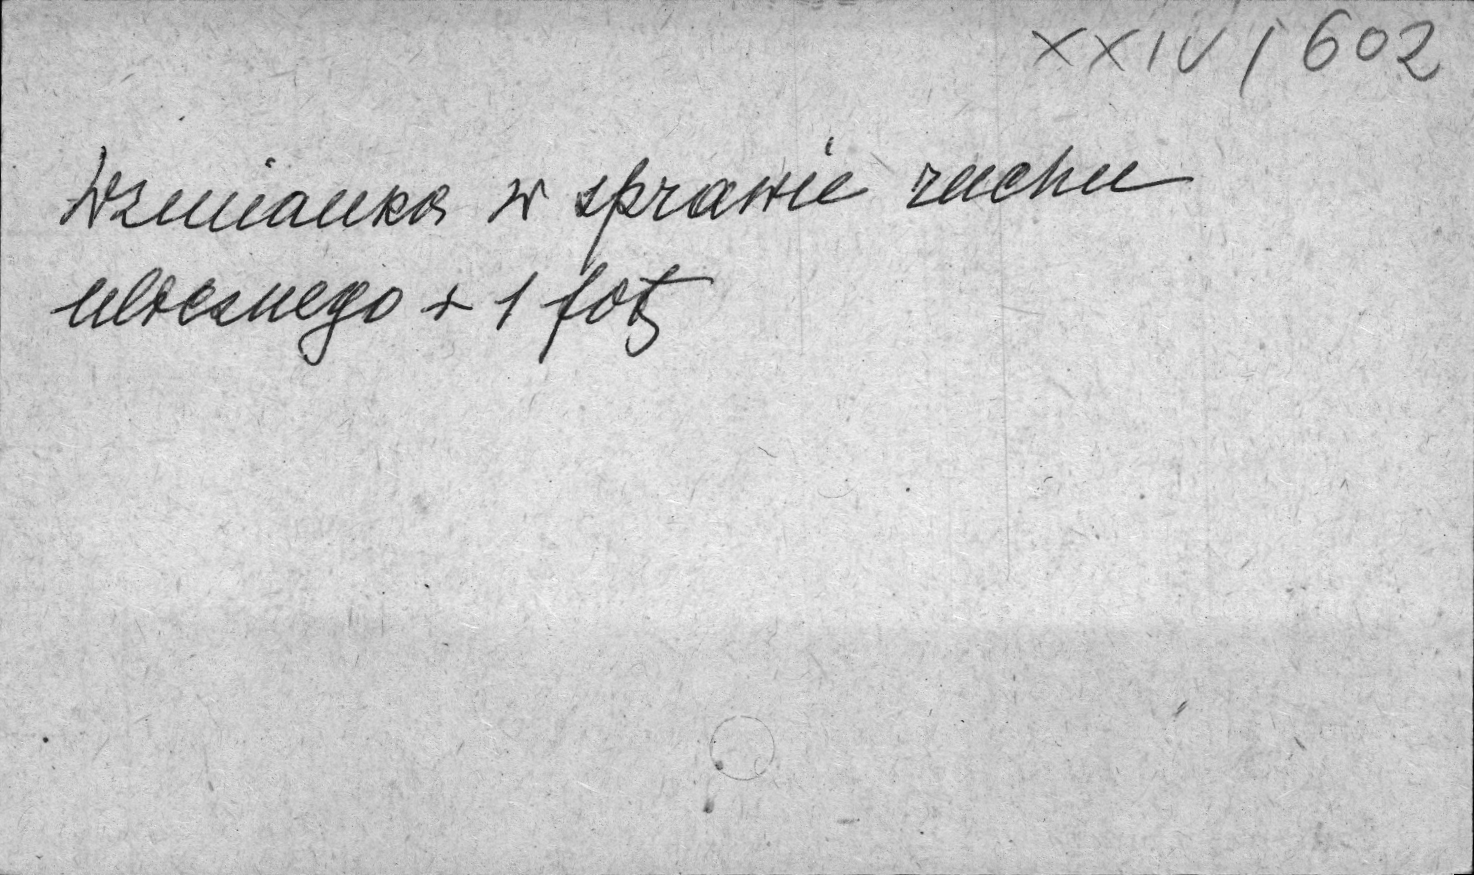 XXIV/602
Wzmianka w sprawie ruchu
ulicznego + 1 fot.